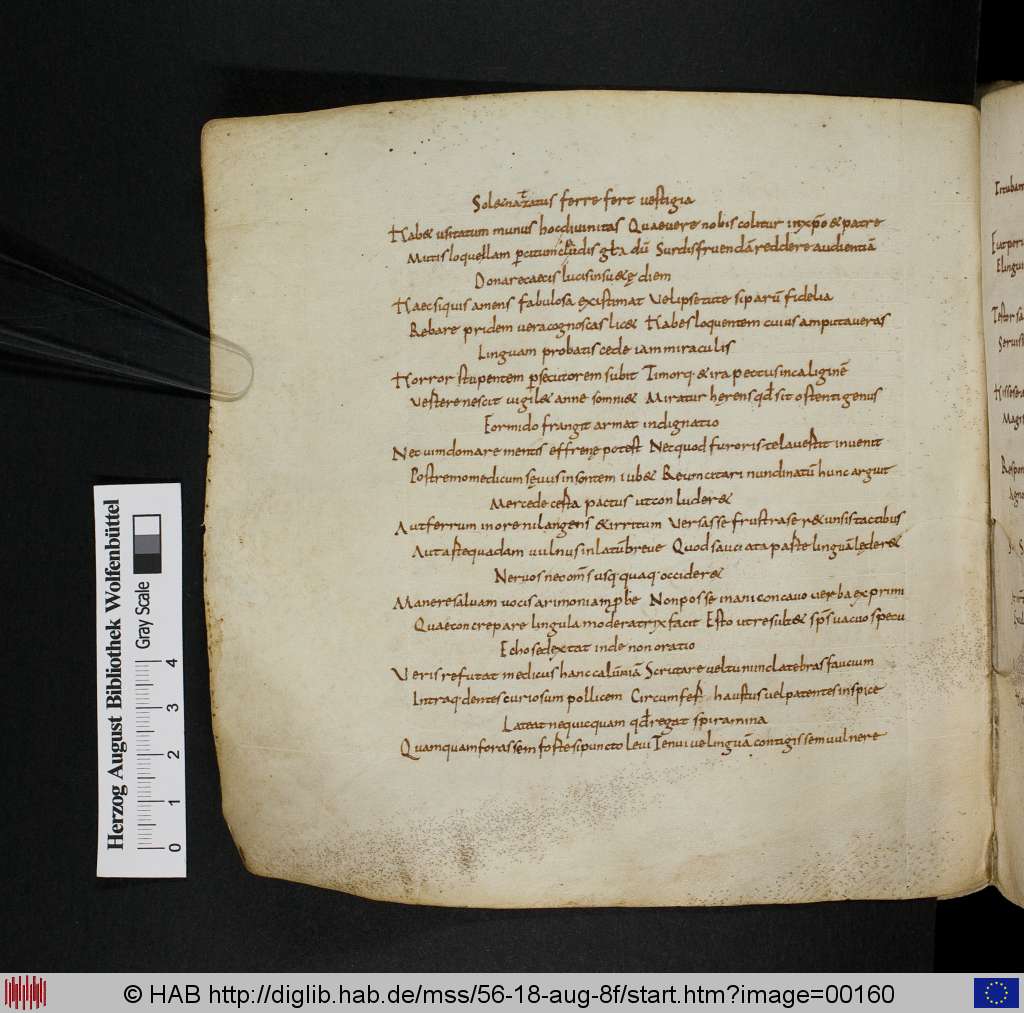 Solegnatatus ferre fert vestigia
Habet usitatum munus hocdivinitas Quaevere nobis colitur inxpo & patre
Mutis loquellam percitum cludis gła dū Surdisfruendā reddere audientiā
Donarecaecis lucisinsuetę diem
Haec siquis amens fabulosa existimat Velipsetute siparū fidelia
Rebare pridem vera cognoscas licet Habesloquentem cuius amputaveras
Linguam probatis cede iam miraculis
Horror stupentem persecutorem subit Timorq; & ira pectus incaliginē
Vestere nescit vigilet anne somniet Miratur hęrens qđ sit ostenti genus
Formido frangit armat indignatio
Nec vim domare mentis effrenę potest Nec quod furoris tela vestit invenit
Postremo medicum sęvus insontem iubet Reum citari nundinatū hunc arguit
Mercede cęsta pactus ut con luderet
Aut ferrum in ore nil angens & irritum Versasse frustra se retunsis tactibus
Aut aste quadam vulnus inlatū breve Quod sauciata paste linguā lęderet
Nervos nec oms usq; quaq; occideret
Manere salvam vocis arimoniam probe Non posse inani concavo verba exprimi
Quae concrepare lingula moderatrix facit Esto ut resultet sps vacuo specu
Echo sed extat inde non oratio
Veris refutat medicus hanc calūmiā Scrutare vel tu nunc latebras faucium
Intraq; dentes curiosum pollicem Circumfer haustus vel patentes inspice
Lateat nequicquam qđ regat spiramina
Quamquam forassem foste si puncto levi Tenui ve linguā contigissem vulnere
Herzog August Bibliothek Wolfenbüttel
Gray Scale
0 1 2 3 4
© HAB http://diglib.hab.de/mss/56-18-aug-8f/start.htm?image=00160